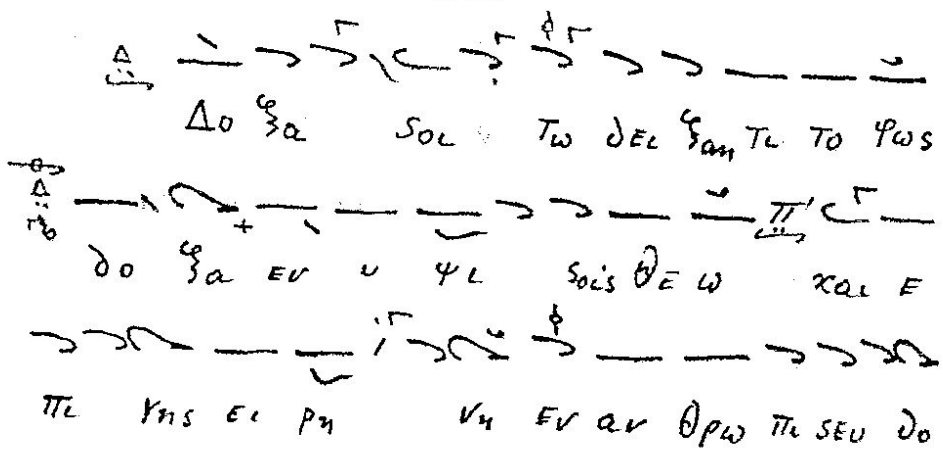 Δο ξα σοι τω δει ξαν τι το φως
δο ξα εν υ ψι σοις θε ω και ε
πι γης ει ρη νη εν αν θρω πι σευ δο